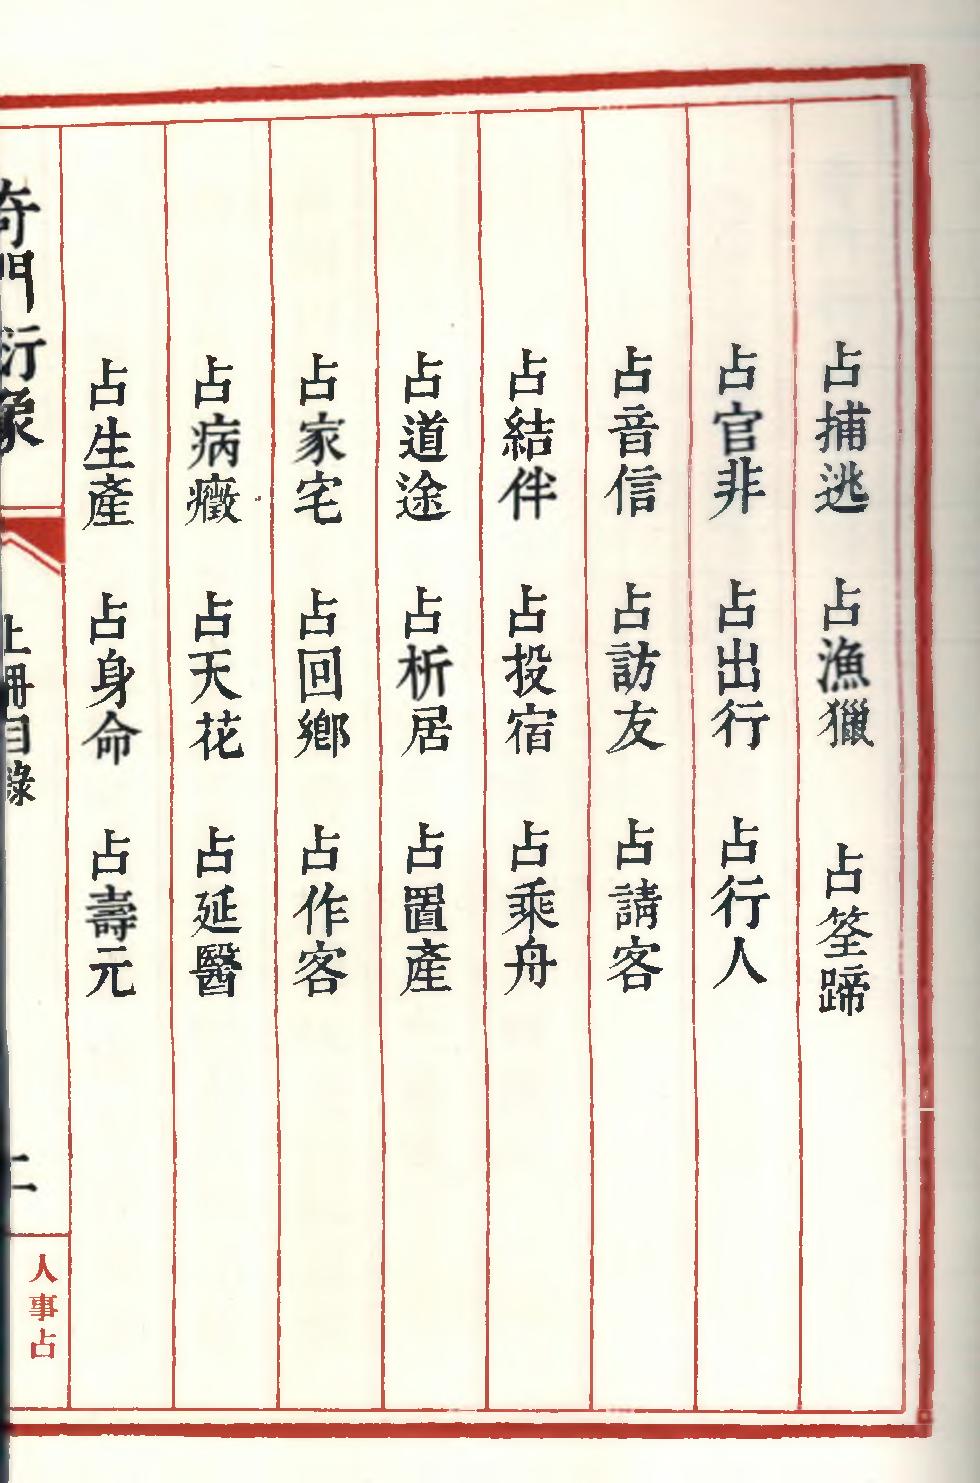 占捕逃 占漁獵 占筌蹄
占官非 占出行 占行人
占音信 占訪友 占請客
占結伴 占投宿 占乘舟
占道途 占析居 占置產
占家宅 占回鄉 占作客
占病癥 占天花 占延醫
占生產 占身命 占壽元
奇門衍象 上冊目錄 二
人事占